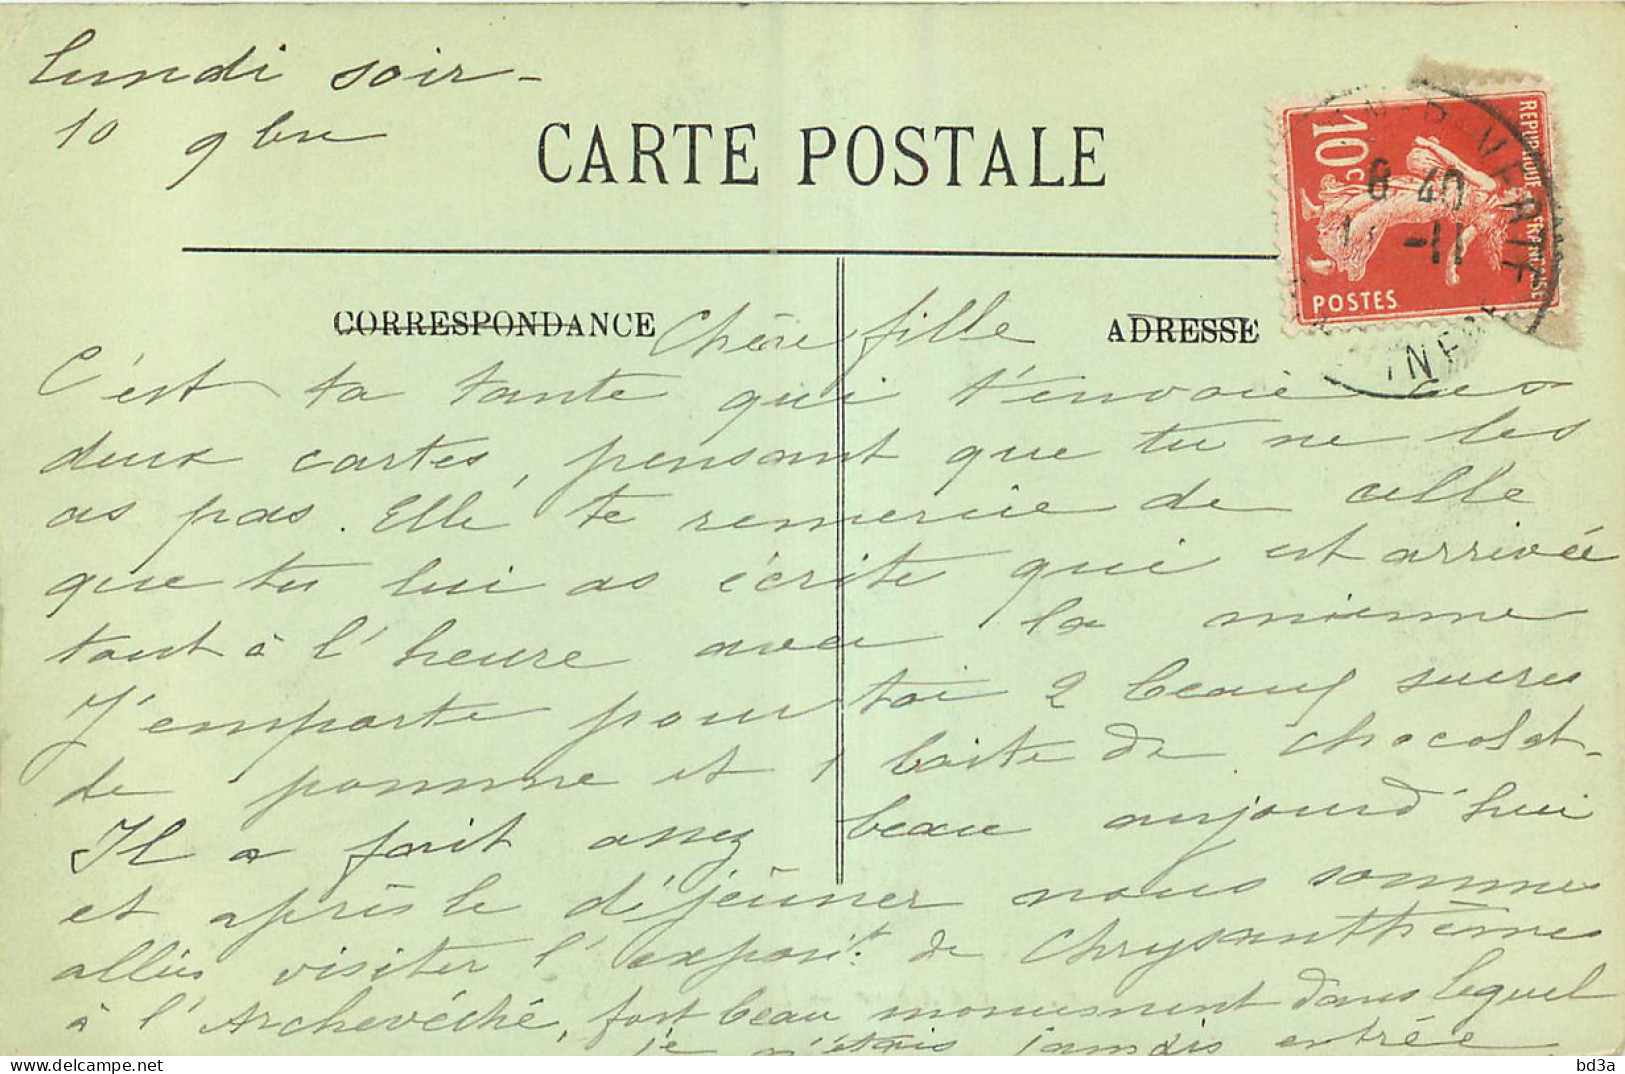 lundi soir -
10 9bre
CARTE POSTALE
REPUBLIQUE FRANÇAISE
10c
POSTES
8 40
-11
CORRESPONDANCE
ADRESSE
Chère fille
C'est ta tante qui t'envoie ces
deux cartes, pensant que tu ne les
as pas. Elle te remercie de celle
que tu lui as écrite qui est arrivée
tout à l'heure avec la mienne
J'emporte pour toi 2 beaux sucres
de pomme et 1 boite de chocolat-
Il a fait assez beau aujourd'hui
et après le déjeuner nous sommes
allés visiter l'exposit. de Chrysanthèmes
à l'Archevêché, fort beau monument dans lequel
je n'étais jamais entrée
bd3a